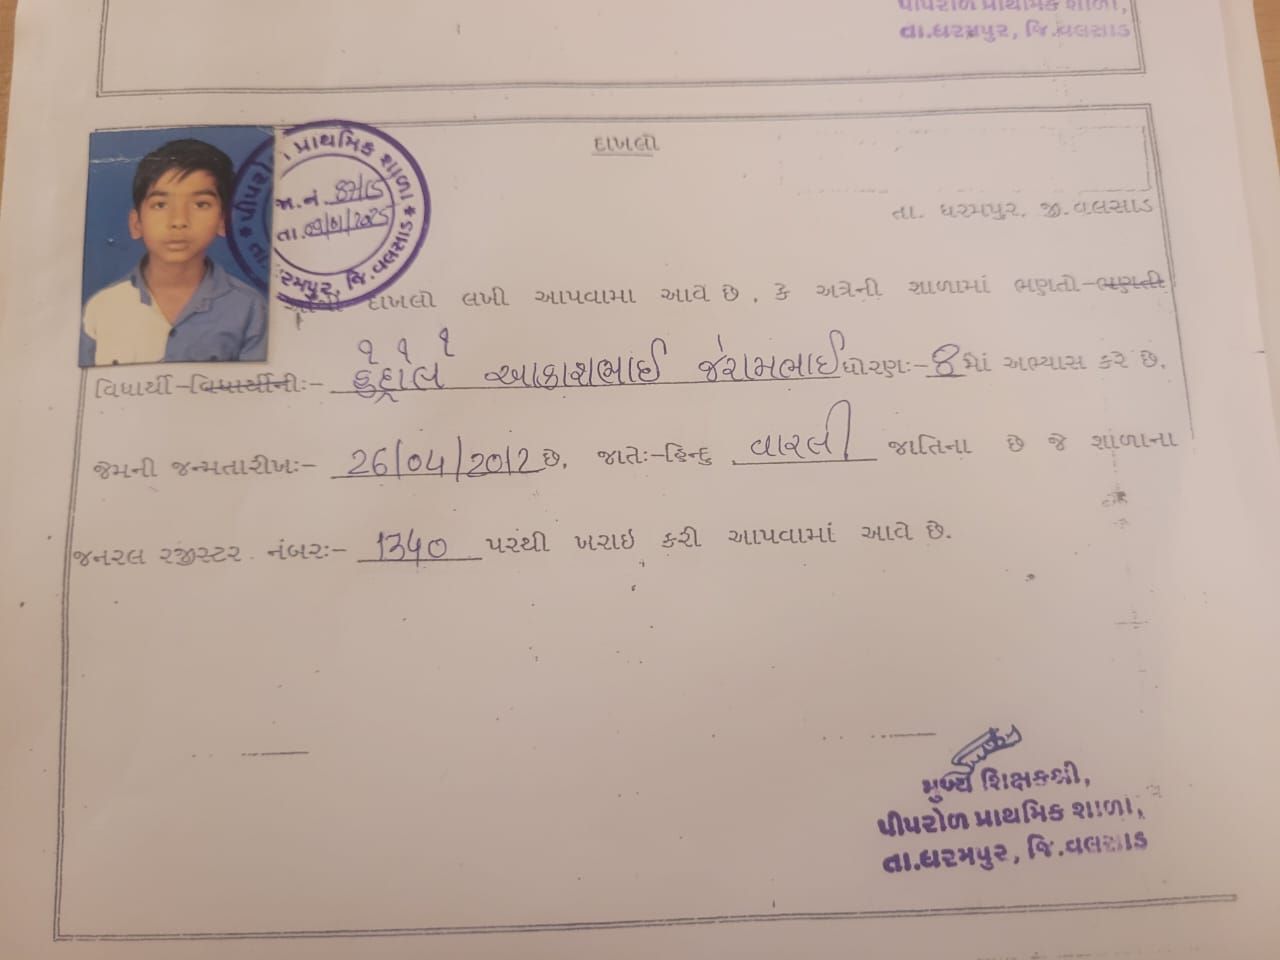 પીપરોળ પ્રાથમિક શાળા,
તા.ધરમપુર, જિ.વલસાડ
દાખલો
પ્રાથમિક શાળા
જા.નં. 87/15
તા. 09/01/2025
ધરમપુર, જિ.વલસાડ
તા. ધરમપુર, જી.વલસાડ
દાખલો લખી આપવામા આવે છે, કે અત્રેની શાળામાં ભણતો-ભણતી
૧ ૧ ૧
વિધાર્થી-વિધાર્થીની:- કુંદ્રાલ આકાશભાઈ જેરામભાઈ ધોરણ:- 8 માં અભ્યાસ કરે છે.
જેમની જન્મતારીખ:- 26/04/2012 છે. જાતે:-હિન્દુ વારલી જાતિના છે જે શાળાના
જનરલ રજીસ્ટર નંબર:- 1340 પરથી ખરાઇ કરી આપવામાં આવે છે.
મુખ્ય શિક્ષકશ્રી,
પીપરોળ પ્રાથમિક શાળા,
તા.ધરમપુર, જિ.વલસાડ